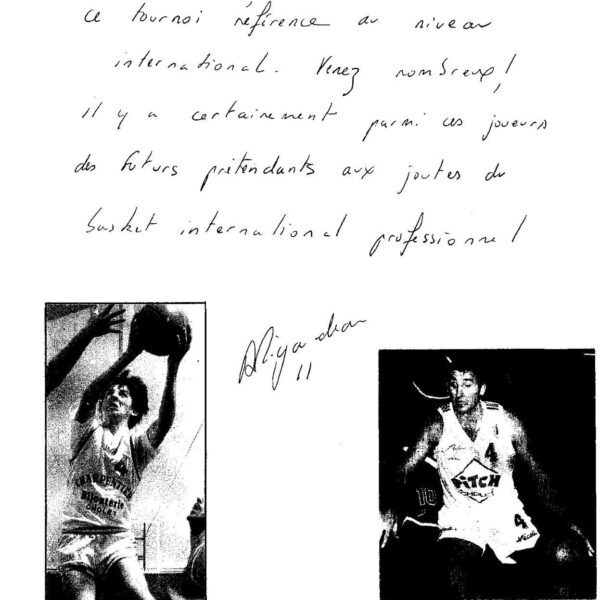 ce tournoi référence au niveau
international. Venez nombreux!
il y a certainement parmi ces joueurs
des futurs prétendants aux joutes du
basket international professionnel
11
4
CHARPENTIER
Bijouterie
CHOLET
4
PITCH
10
4